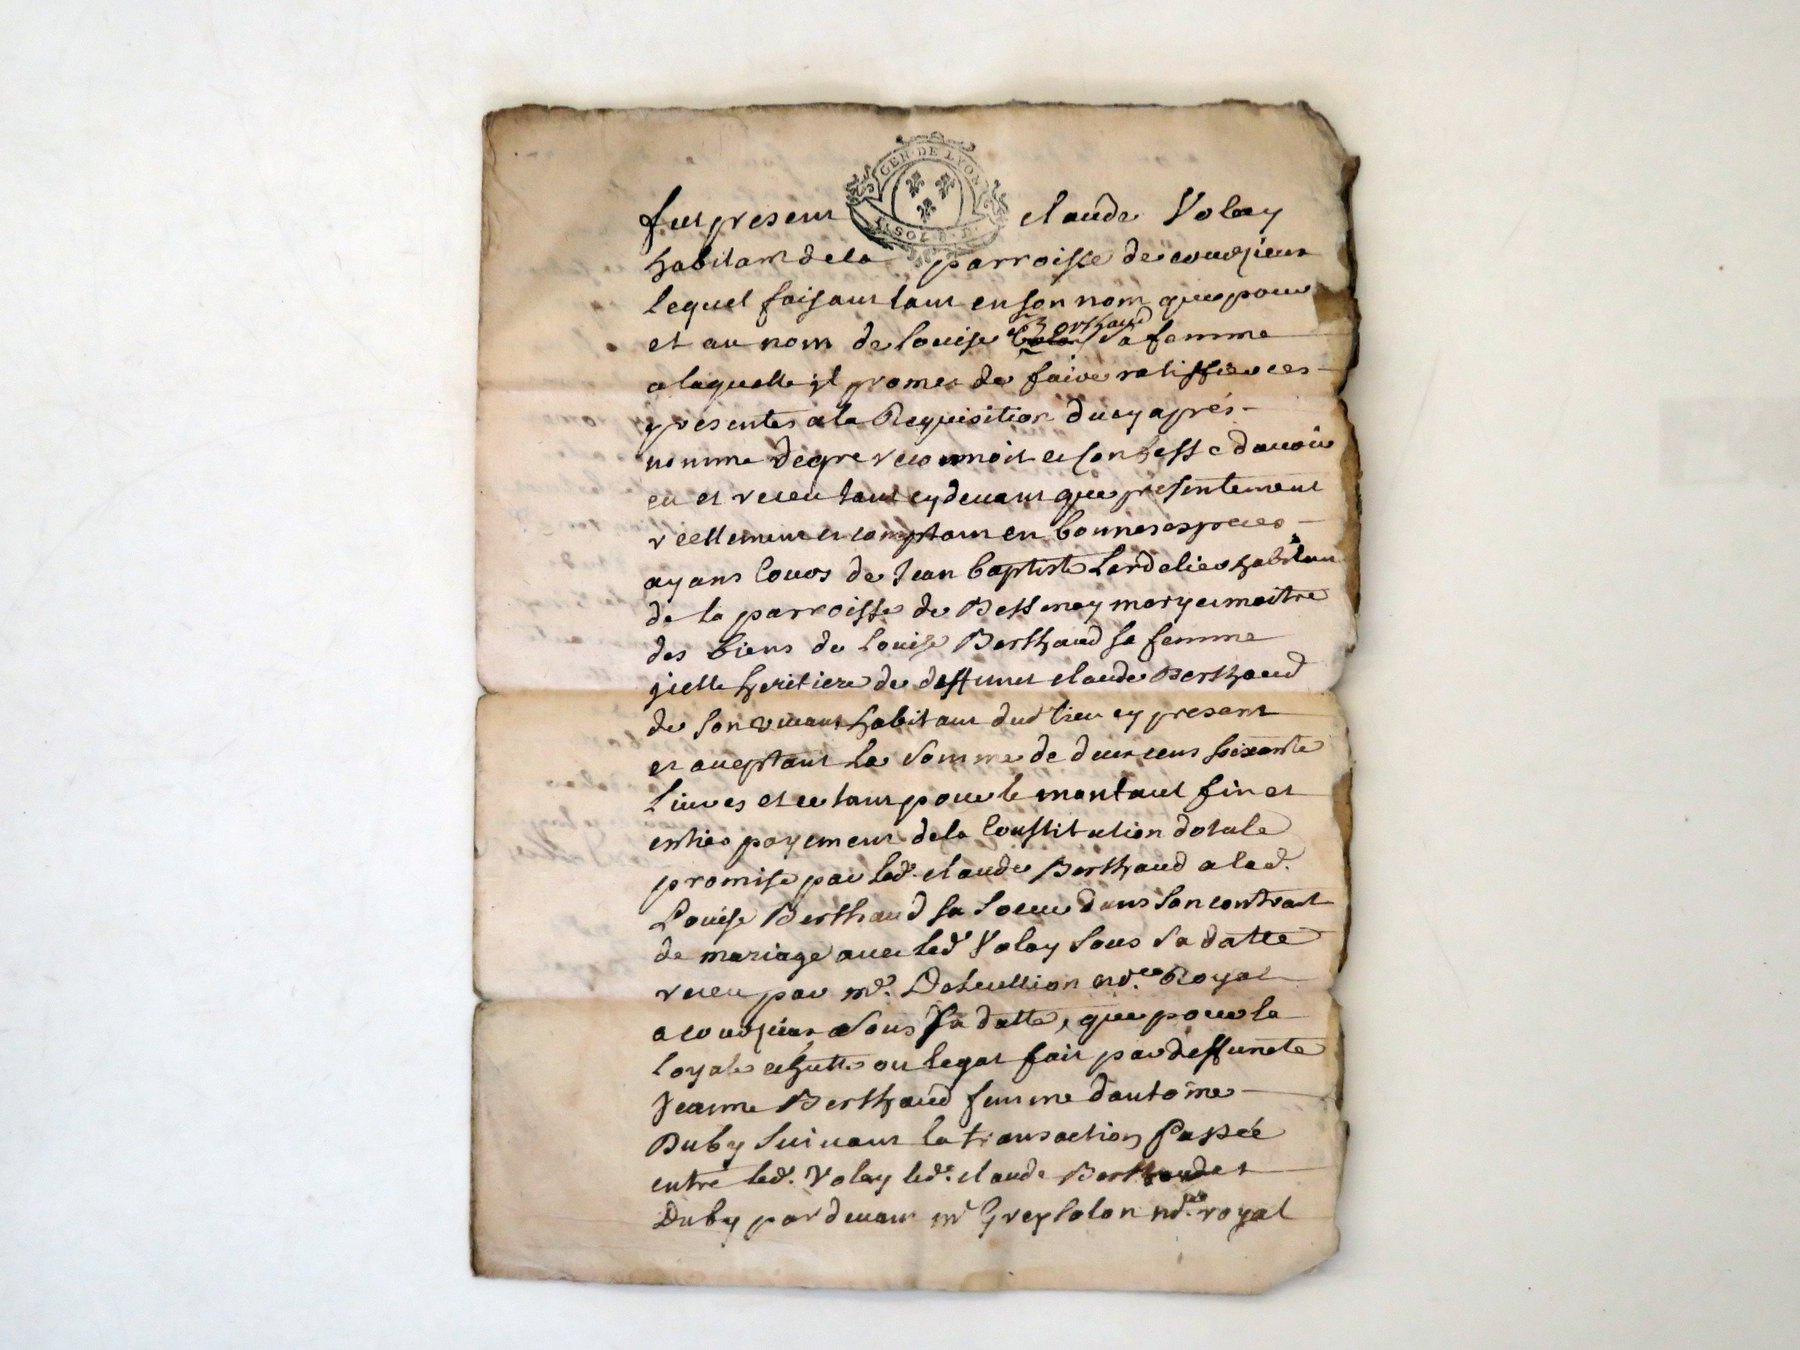 GEN·DE LYON
fut present claude Volay
habitant de la parroisse de courzieux
lequel faisant tant en son nom que pour
et au nom de louise Berthaud sa femme
a laquelle jl promet de faire ratiffier ces
presentes a la Requisition du cy aprés
nomme de gre reconnoit et confesse davoir
eu et receu tant cy devant que presentement
reellement et comptant en bonnes especes
ayans cours de Jean baptiste Lardelier habitant
de la parroisse de Bessenay mary et maitre
des biens de Louise Berthaud sa femme
jcelle heritiere de deffunt claude Berthaud
de son vivant habitant dud lieu cy present
et aceptant La somme de deux cens soixante
Livres et ce tant pour le montant fin et
entier payement de la Constitution dotale
promise par led. claude Berthaud a lad.
Louise Berthaud sa soeur dans son contract
de mariage avec led Volay sous sa datte
receu par me. not.re Royal
a courzieux sous sa datte, que pour la
loyale echutte ou legat fait par deffuncte
Jeanne Berthaud femme dantoine
Duby suivant la transaction Passée
entre led. Volay led. claude Berthaud et
Duby pardevant me Greysolon not.re royal